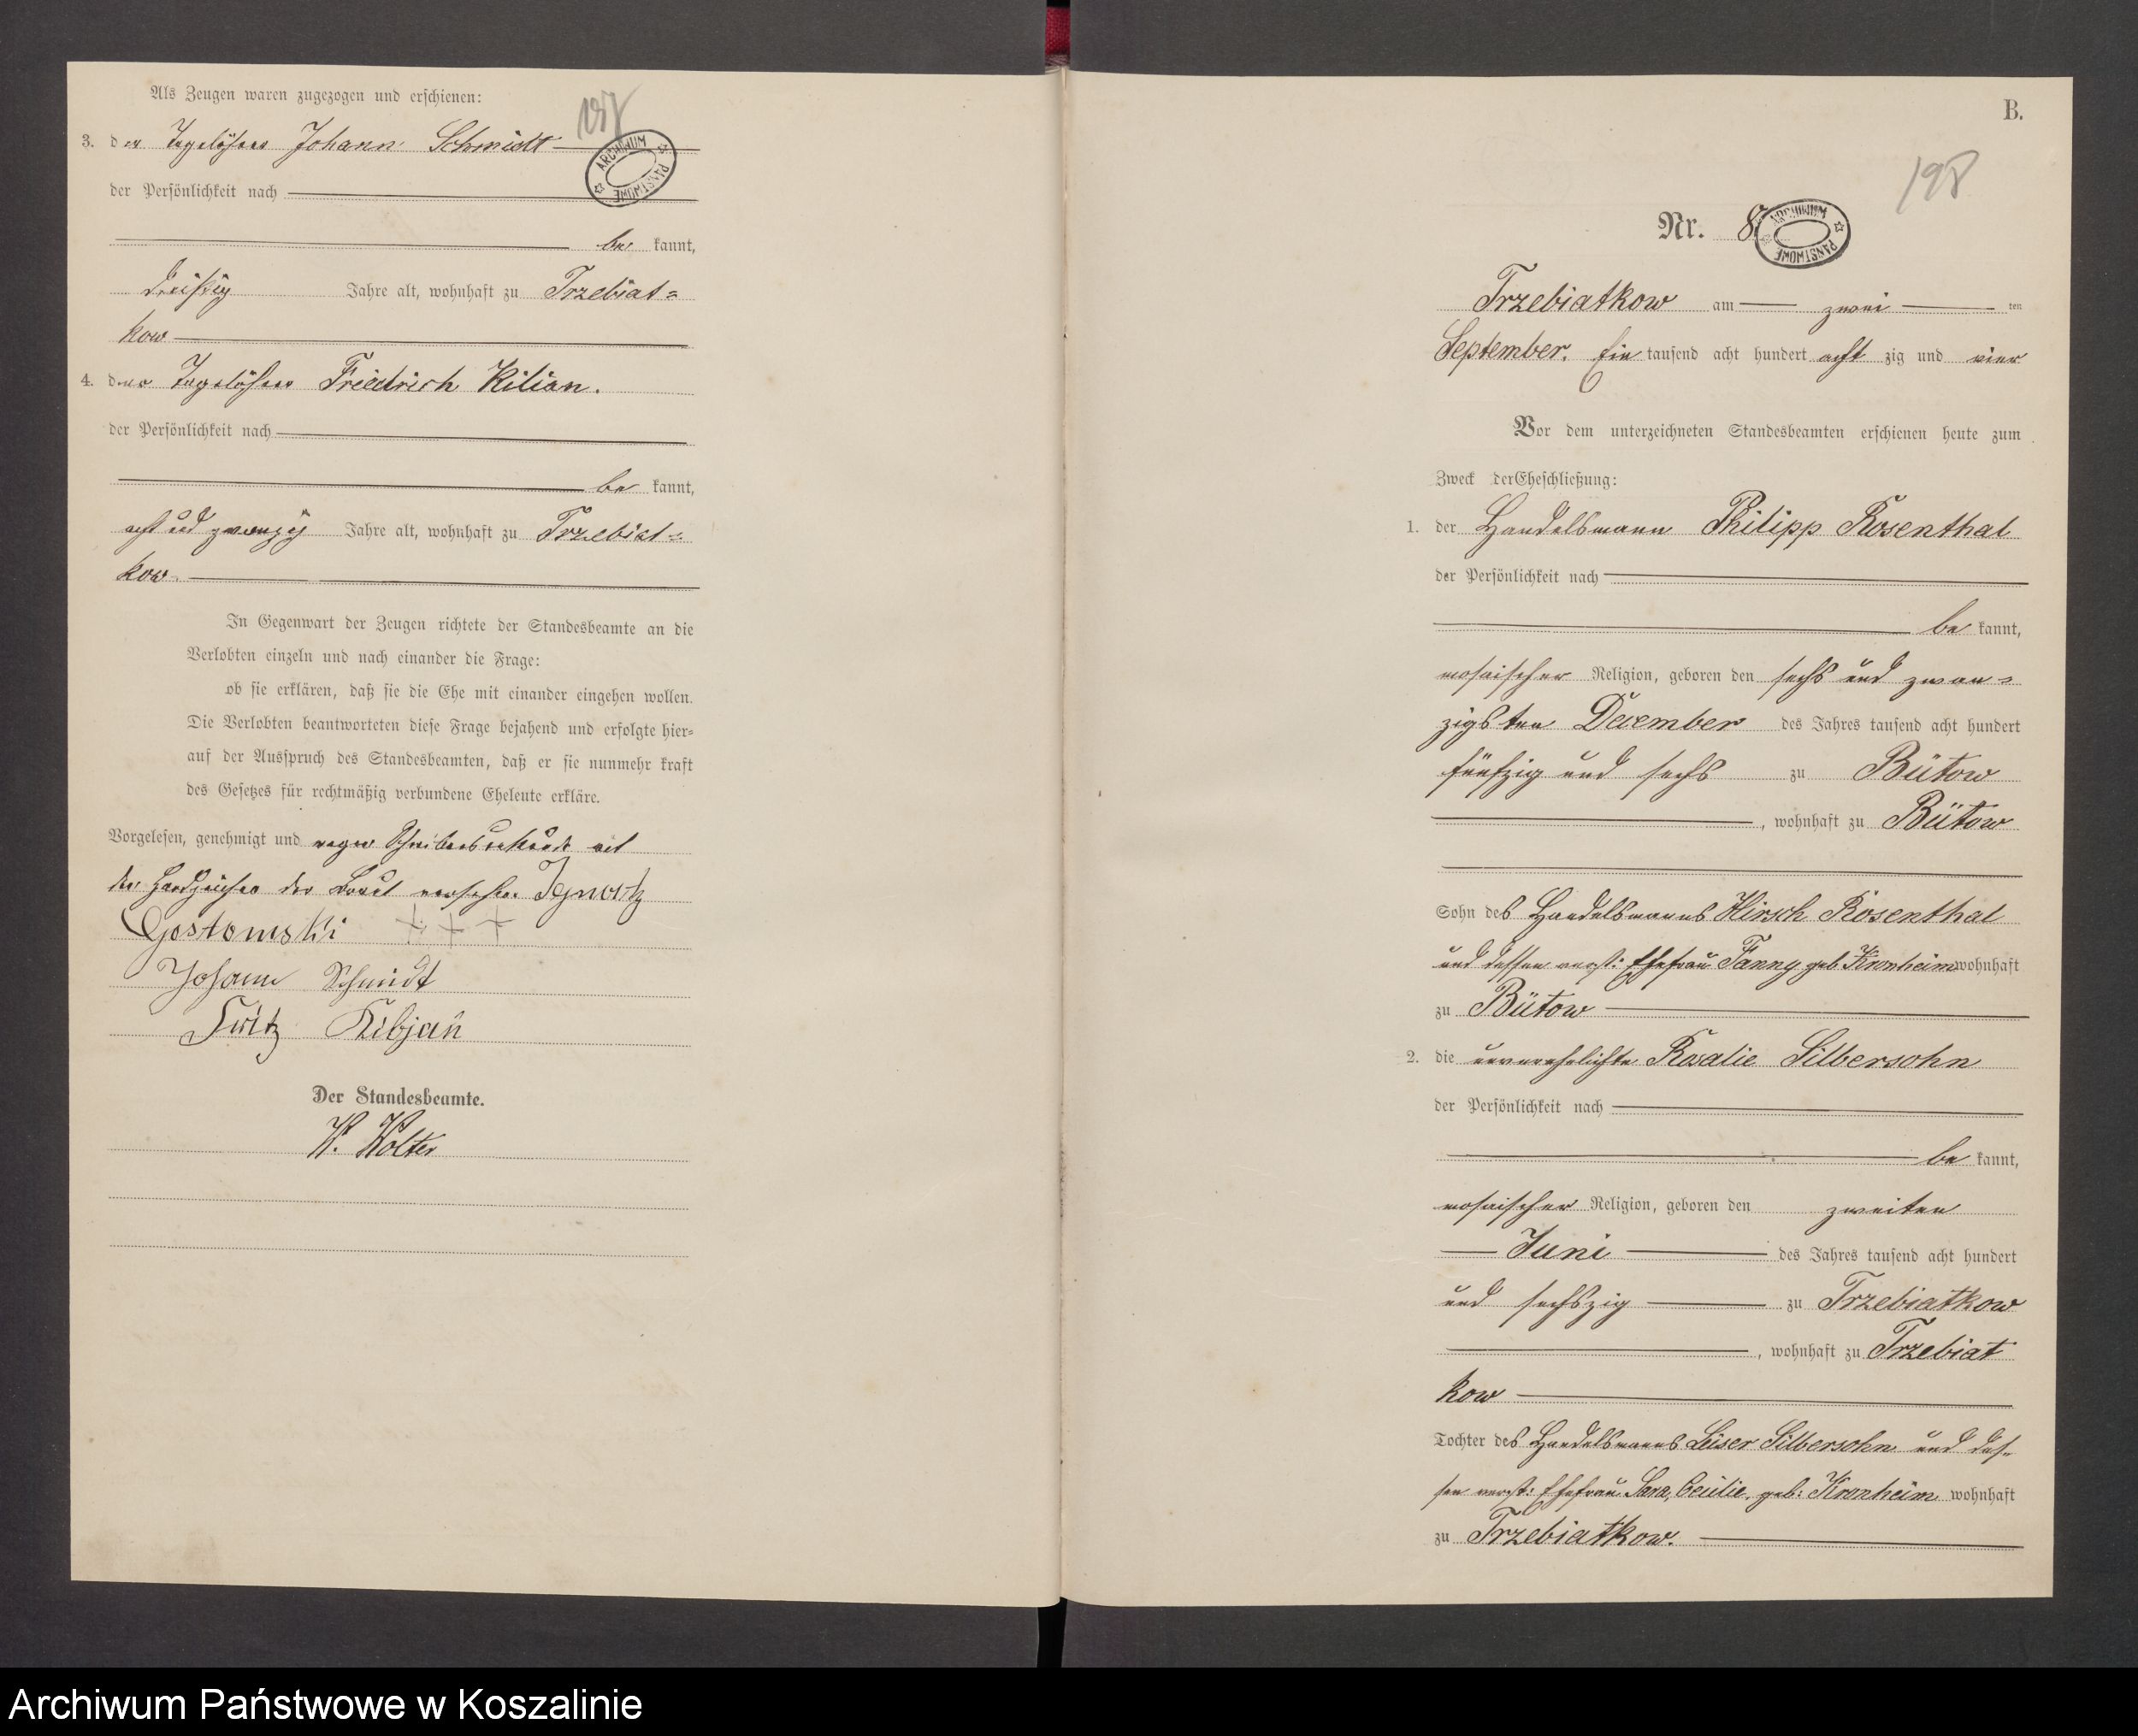 Als Zeugen waren zugezogen und erschienen:
3. der Tagelöhner Johann Schmidt
der Persönlichkeit nach
be kannt,
dreißig Jahre alt, wohnhaft zu Trzebiat=
kow
4. der Tagelöhner Friedrich Kilian.
der Persönlichkeit nach
be kannt,
acht und zwanzig Jahre alt, wohnhaft zu Trzebiat=
kow.
In Gegenwart der Zeugen richtete der Standesbeamte an die
Verlobten einzeln und nach einander die Frage:
ob sie erklären, daß sie die Ehe mit einander eingehen wollen.
Die Verlobten beantworteten diese Frage bejahend und erfolgte hier=
auf der Ausspruch des Standesbeamten, daß er sie nunmehr kraft
des Gesetzes für rechtmäßig verbundene Eheleute erkläre.
Vorgelesen, genehmigt und wegen Schreibensunkunde mit
den Handzeichen der Braut versehen Ignatz
Gostomski + + +
Johann Schmidt
Fritz Kiljan
Der Standesbeamte.
W. Wolter
ARCHIWUM PAŃSTWOWE
B.
198
Nr. 8
ARCHIWUM PAŃSTWOWE
Trzebiatkow am zwei ten
September. Ein tausend acht hundert acht zig und vier
Vor dem unterzeichneten Standesbeamten erschienen heute zum
Zweck der Eheschließung:
1. der Handelsmann Philipp Rosenthal
der Persönlichkeit nach
be kannt,
mosaischer Religion, geboren den sechs und zwan=
zigsten December des Jahres tausend acht hundert
fünfzig und sechs zu Bütow
, wohnhaft zu Bütow
Sohn des Handelsmanns Hirsch Rosenthal
und dessen verst: Ehefrau Fanny geb. Kronheim wohnhaft
zu Bütow
2. die unverehelichte Rosalie Silbersohn
der Persönlichkeit nach
be kannt,
mosaischer Religion, geboren den zweiten
Juni des Jahres tausend acht hundert
und sechszig zu Trzebiatkow
, wohnhaft zu Trzebiat
kow
Tochter des Handelsmanns Leiser Silbersohn und des=
sen verst: Ehefrau Sara, Cecilie, geb: Kronheim wohnhaft
zu Trzebiatkow.
Archiwum Państwowe w Koszalinie